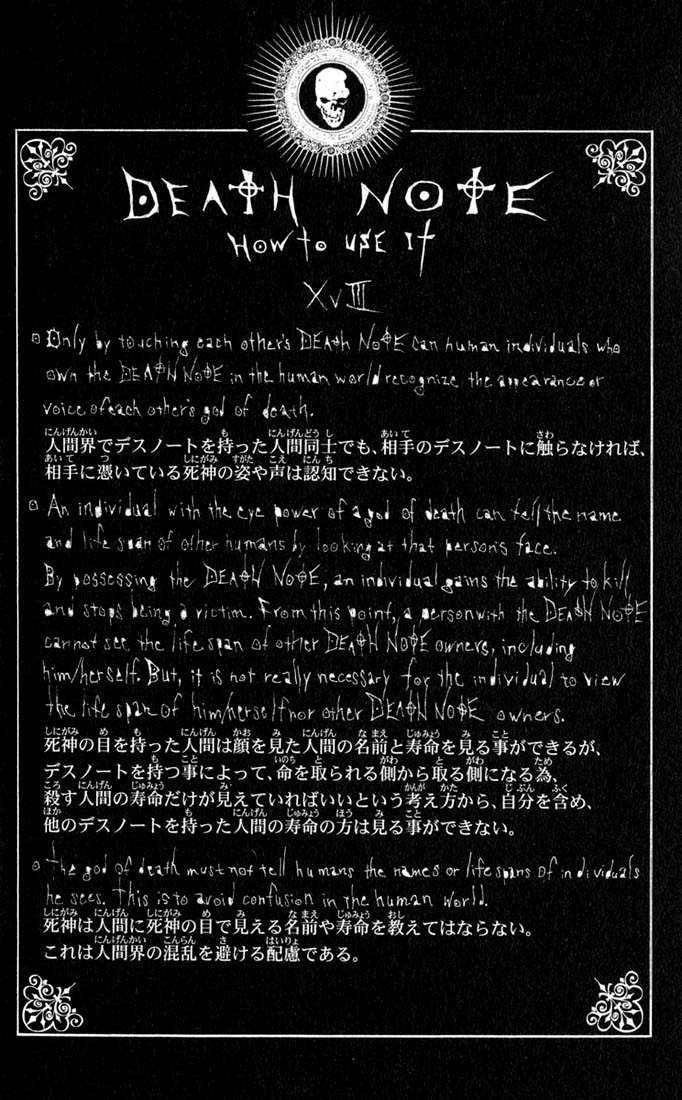 DEATH NOTE
HOW to USE It
XVIII
Only by touching each other's DEATH NOTE can human individuals who
own the DEATH NOTE in the human world recognize the appearance or
voice of each other's god of death.
人間界でデスノートを持った人間同士でも、相手のデスノートに触らなければ、
相手に憑いている死神の姿や声は認知できない。
An individual with the eye power of a god of death can tell the name
and life span of other humans by looking at that person's face.
By possessing the DEATH NOTE, an individual gains the ability to kill
and stops being a victim. From this point, a person with the DEATH NOTE
cannot see the life span of other DEATH NOTE owners, including
him/herself. But, it is not really necessary for the individual to view
the life span of him/herself nor other DEATH NOTE owners.
死神の目を持った人間は顔を見た人間の名前と寿命を見る事ができるが、
デスノートを持つ事によって、命を取られる側から取る側になる為、
殺す人間の寿命だけが見えていればいいという考え方から、自分を含め、
他のデスノートを持った人間の寿命の方は見る事ができない。
The god of death must not tell humans the names or life spans of individuals
he sees. This is to avoid confusion in the human world.
死神は人間に死神の目で見える名前や寿命を教えてはならない。
これは人間界の混乱を避ける配慮である。